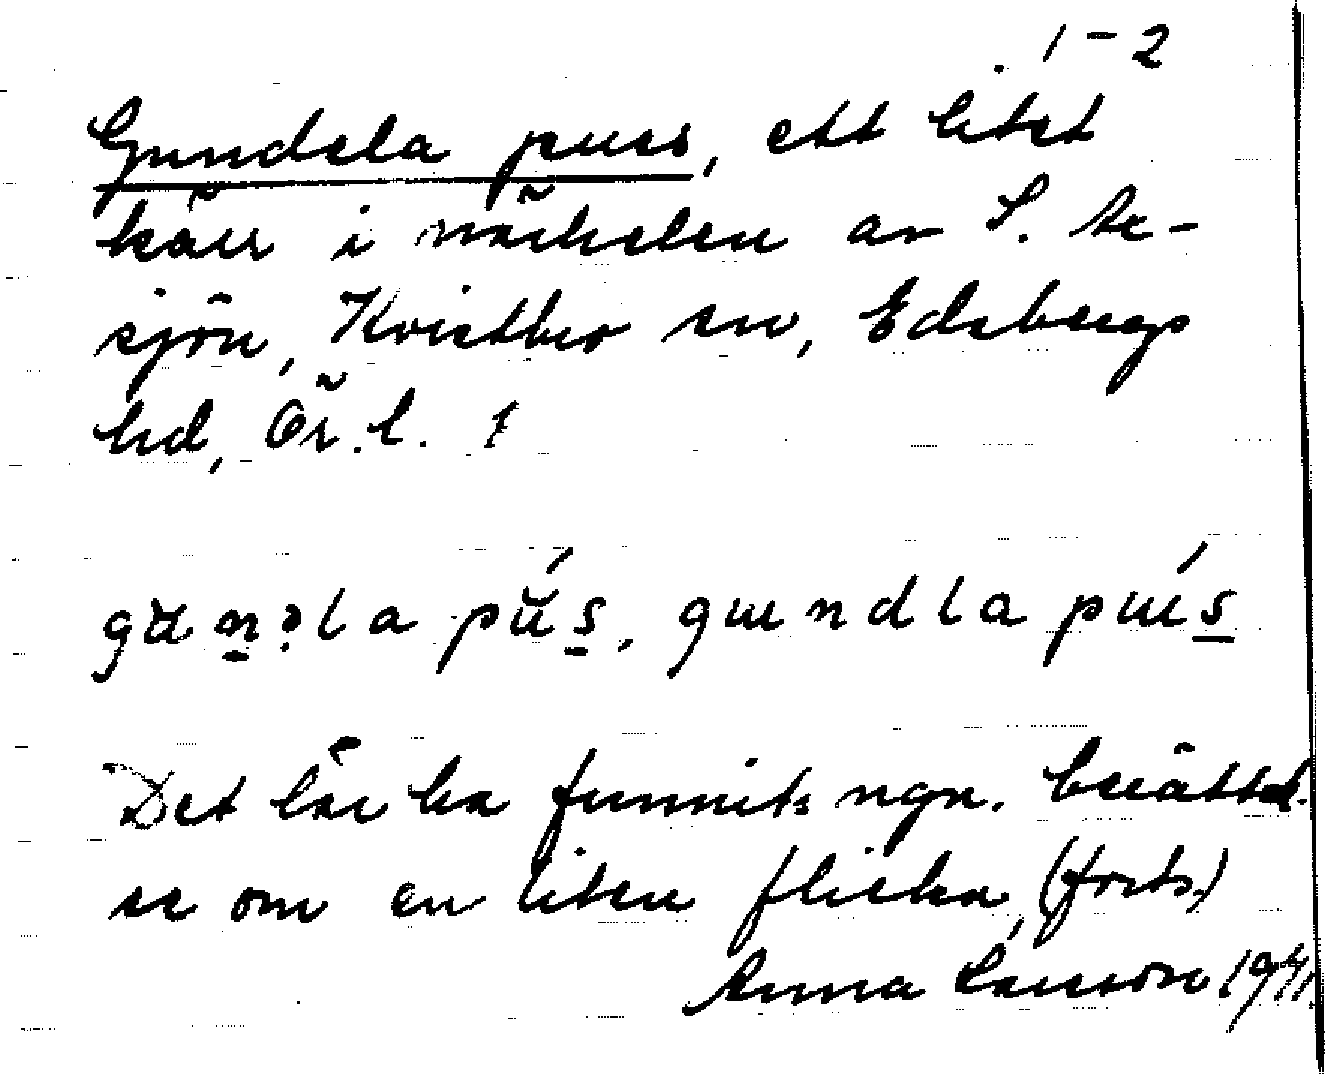 1-2
Gundela puss, ett litet
kärr i närheten av S. Te-
sjön, Kvistbro sn, Edsbergs
hd, Ör. l. 1
gŭn̠ə la pŭ́s̠. gundla pús̠
Det lär ha funnits ngn. berättel-
se om en liten flicka, (forts.)
Anna Larsson 1941.